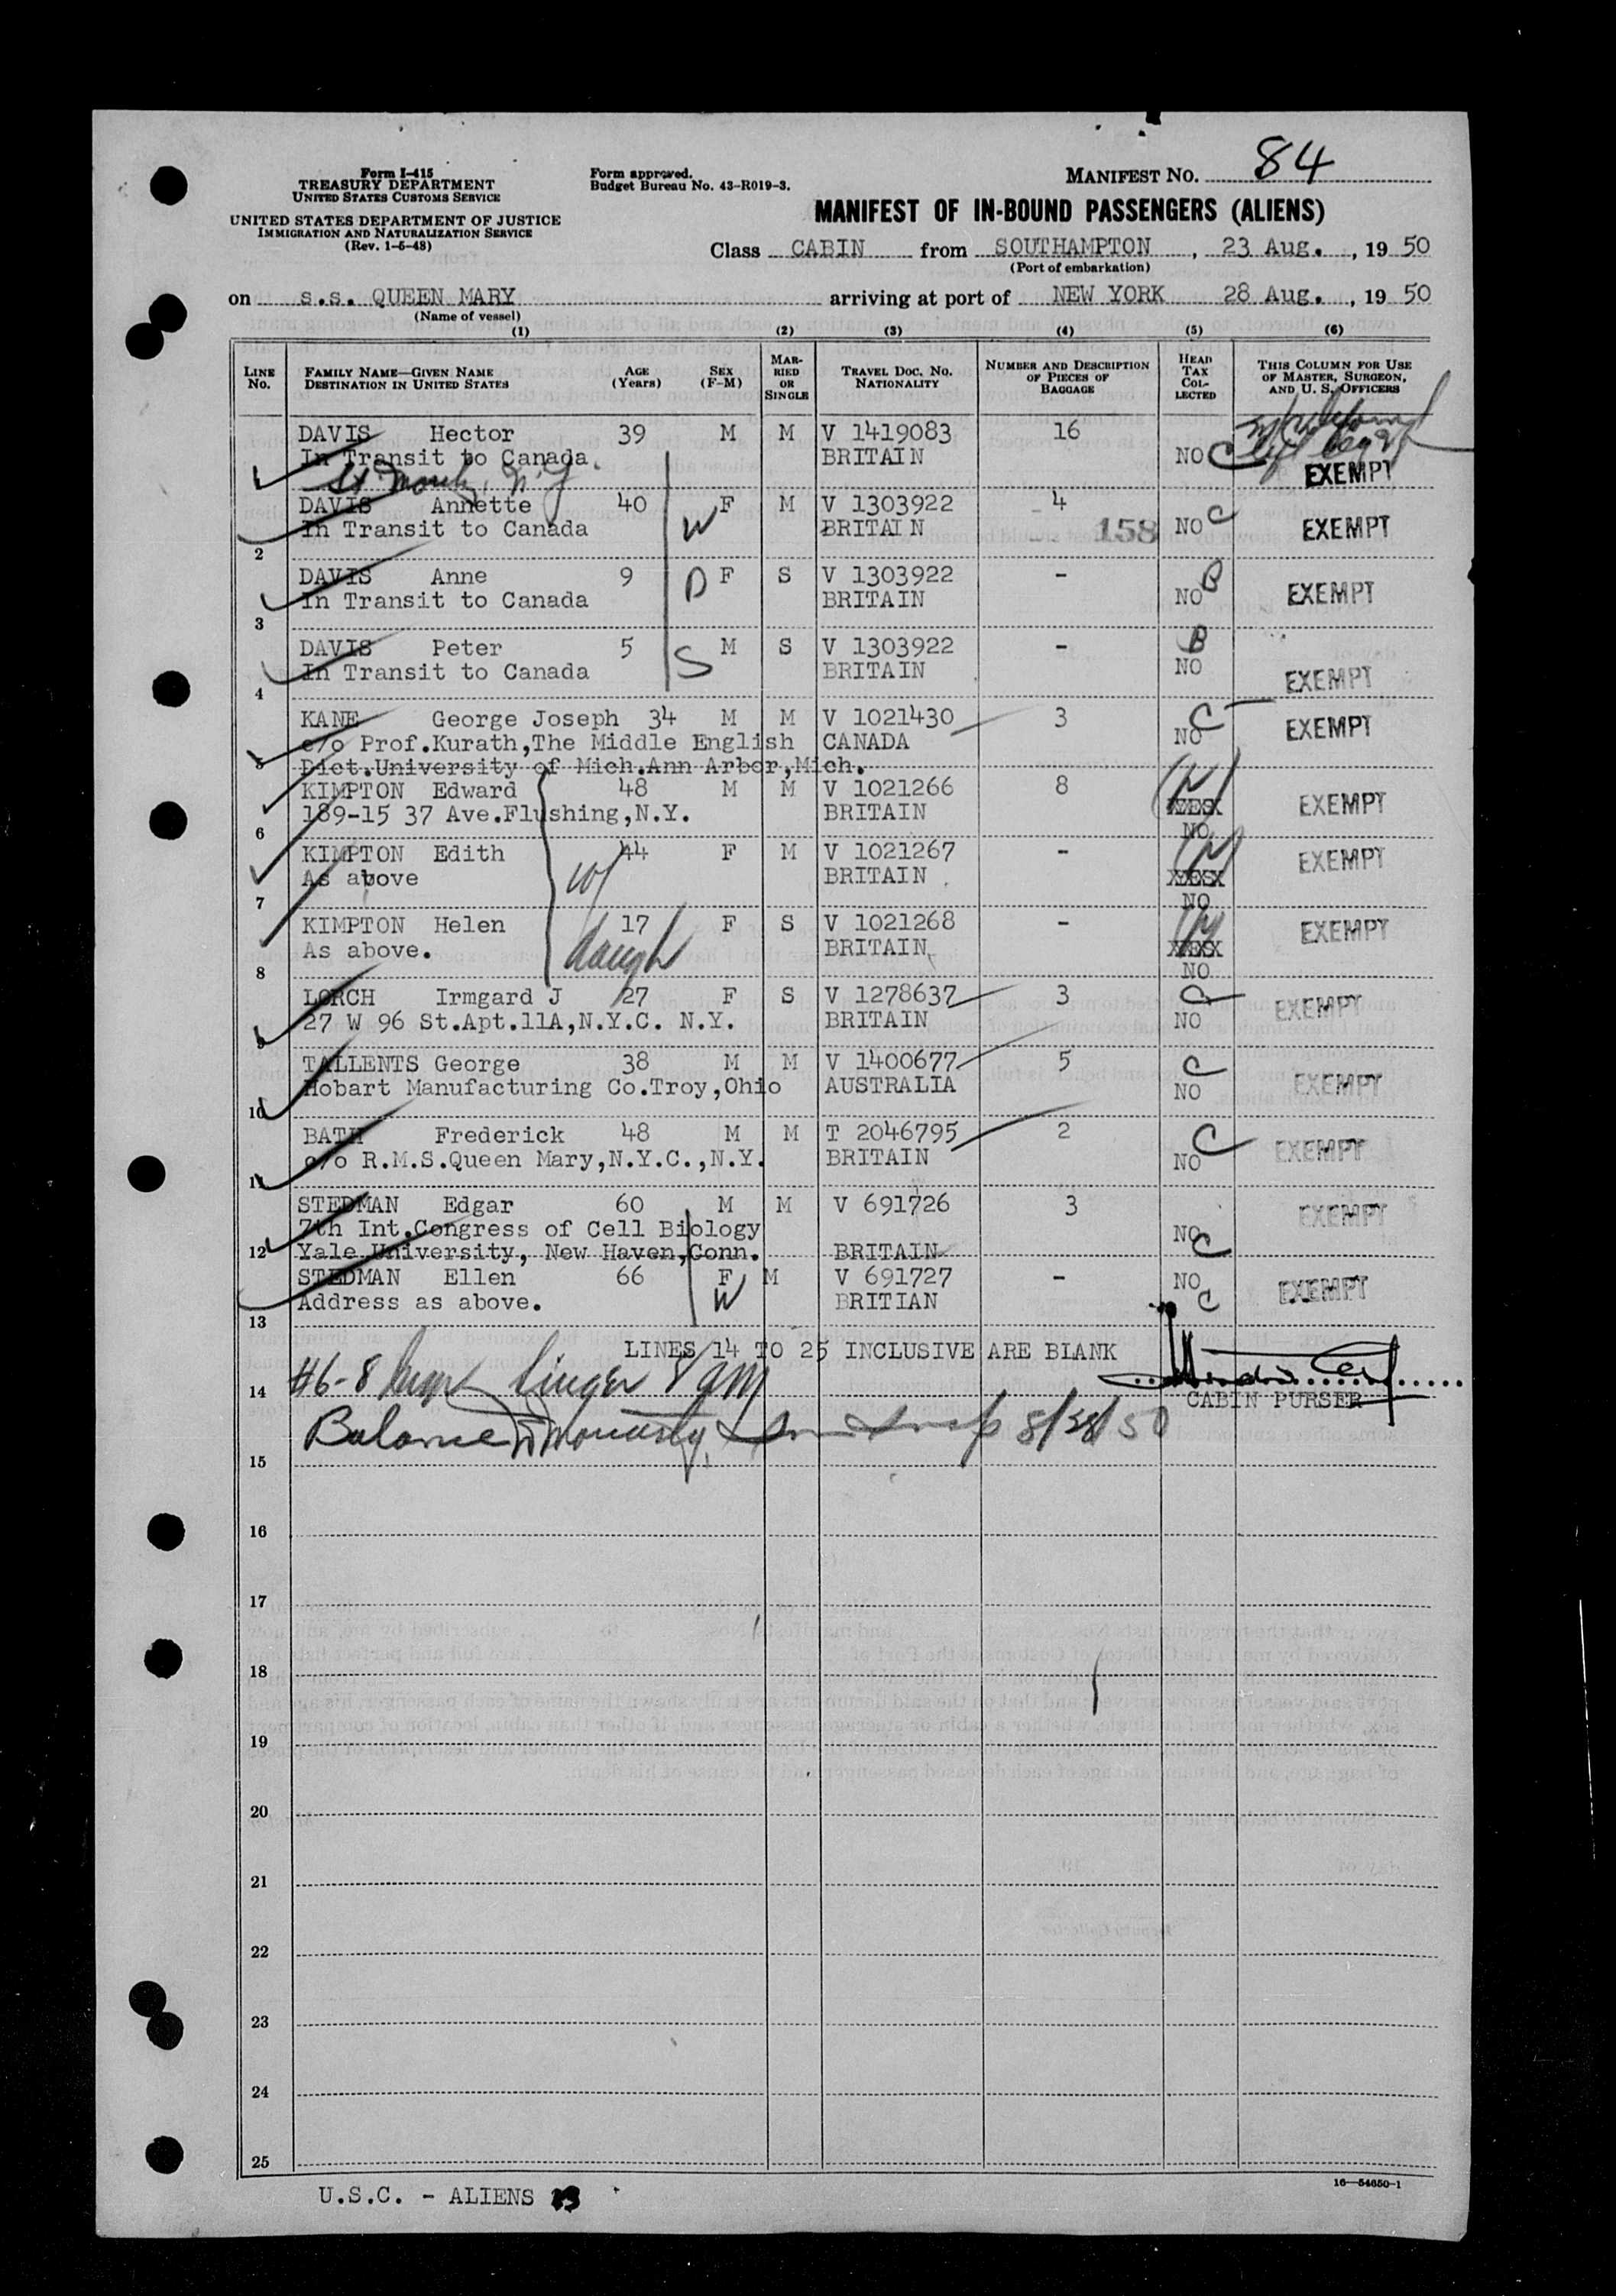 Form I-415
TREASURY DEPARTMENT
UNITED STATES CUSTOMS SERVICE
UNITED STATES DEPARTMENT OF JUSTICE
IMMIGRATION AND NATURALIZATION SERVICE
(Rev. 1-5-48)
Form approved.
Budget Bureau No. 43-R019-3.
MANIFEST NO. 84
MANIFEST OF IN-BOUND PASSENGERS (ALIENS)
Class CABIN from SOUTHAMPTON, 23 Aug., 1950
(Port of embarkation)
on s.s. QUEEN MARY arriving at port of NEW YORK 28 Aug., 1950
(Name of vessel)
(1) (2) (3) (4) (5) (6)
LINE NO. FAMILY NAME—GIVEN NAME DESTINATION IN UNITED STATES AGE (Years) SEX (F-M) MARRIED OR SINGLE TRAVEL DOC. NO. NATIONALITY NUMBER AND DESCRIPTION OF PIECES OF BAGGAGE HEAD TAX COLLECTED THIS COLUMN FOR USE OF MASTER, SURGEON, AND U. S. OFFICERS
DAVIS Hector 39 M M V 1419083 16
In Transit to Canada. BRITAIN NO C EXEMPT
DAVIS Annette 40 F M V 1303922 4
In Transit to Canada W BRITAIN 158 NO C EXEMPT
2
DAVIS Anne 9 D F S V 1303922 - B
In Transit to Canada BRITAIN NO EXEMPT
3
DAVIS Peter 5 S M S V 1303922 - B
In Transit to Canada BRITAIN NO EXEMPT
4
KANE George Joseph 34 M M V 1021430 3 C
c/o Prof.Kurath,The Middle English CANADA NO EXEMPT
5 Dict.University of Mich.Ann Arbor,Mich.
KIMPTON Edward 48 M M V 1021266 8
189-15 37 Ave.Flushing,N.Y. BRITAIN XYESX EXEMPT
6 NO
KIMPTON Edith 44 F M V 1021267 -
As above W BRITAIN XYESX EXEMPT
7 NO
KIMPTON Helen 17 F S V 1021268 -
As above. daugh BRITAIN XYESX EXEMPT
8 NO
LORCH Irmgard J 27 F S V 1278637 3 C
27 W 96 St.Apt.11A,N.Y.C. N.Y. BRITAIN NO EXEMPT
9
TALLENTS George 38 M M V 1400677 5 C
Hobart Manufacturing Co.Troy,Ohio AUSTRALIA NO EXEMPT
10
BATH Frederick 48 M M T 2046795 2 C
c/o R.M.S.Queen Mary,N.Y.C.,N.Y. BRITAIN NO EXEMPT
11
STEDMAN Edgar 60 M M V 691726 3
7th Int.Congress of Cell Biology NO C EXEMPT
12 Yale University, New Haven,Conn. BRITAIN
STEDMAN Ellen 66 F M V 691727 - NO
Address as above. W BRITIAN C EXEMPT
13
LINES 14 TO 25 INCLUSIVE ARE BLANK
#6-8
14 CABIN PURSER
Balance 8/28/50
15
16
17
18
19
20
21
22
23
24
25
16—54650-1
U.S.C. - ALIENS 13